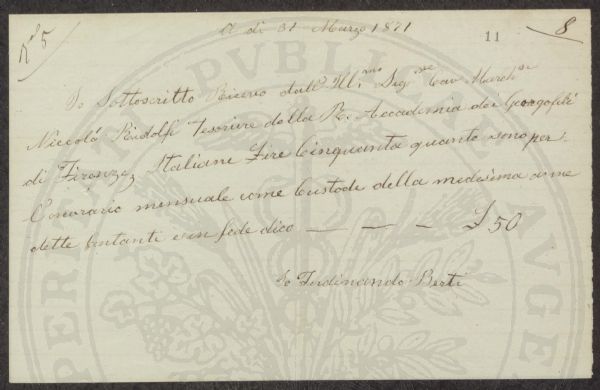 N° 5
A dì 31 Marzo 1871
11
8
Io Sottoscritto Ricevo dall' Ill.mo Sig.re Cav. March.se
Niccolò Ridolfi Tesoriere della R. Accademia dei Georgofili
di Firenze, Italiane Lire Cinquanta quanto sono per
l'onorario mensuale come Custode della medesima a me
dette contanti e in fede dico — — — £ 50
Io Ferdinando Berti
PVBLI
AVGE
PERITATI